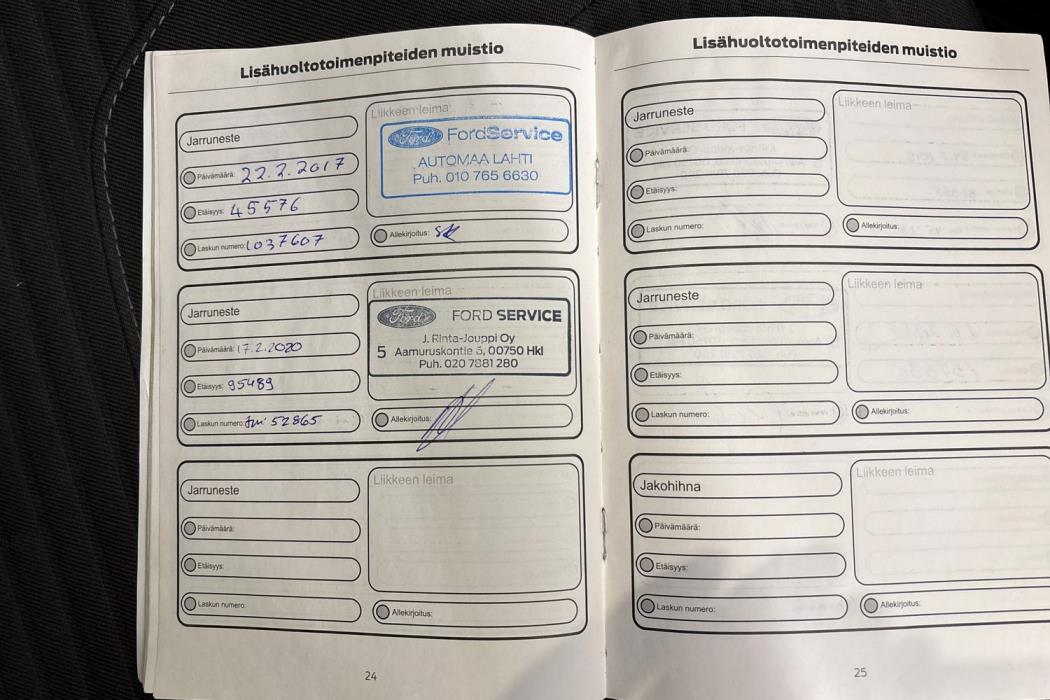 Lisähuoltotoimenpiteiden muistio
Jarruneste
Päivämäärä: 22.2.2017
Etäisyys: 45576
Laskun numero: 1037607
Liikkeen leima
Ford FordService
AUTOMAA LAHTI
Puh. 010 765 6630
Allekirjoitus:
Jarruneste
Päivämäärä: 17.2.2020
Etäisyys: 95489
Laskun numero: 52865
Liikkeen leima
Ford FORD SERVICE
J. Rinta-Jouppi Oy
5 Aamuruskontie 5, 00750 Hki
Puh. 020 7881 280
Allekirjoitus:
Jarruneste
Päivämäärä:
Etäisyys:
Laskun numero:
Liikkeen leima
Allekirjoitus:
24
Lisähuoltotoimenpiteiden muistio
Jarruneste
Päivämäärä:
Etäisyys:
Laskun numero:
Liikkeen leima
Allekirjoitus:
Jarruneste
Päivämäärä:
Etäisyys:
Laskun numero:
Liikkeen leima
Allekirjoitus:
Jakohihna
Päivämäärä:
Etäisyys:
Laskun numero:
Liikkeen leima
Allekirjoitus:
25